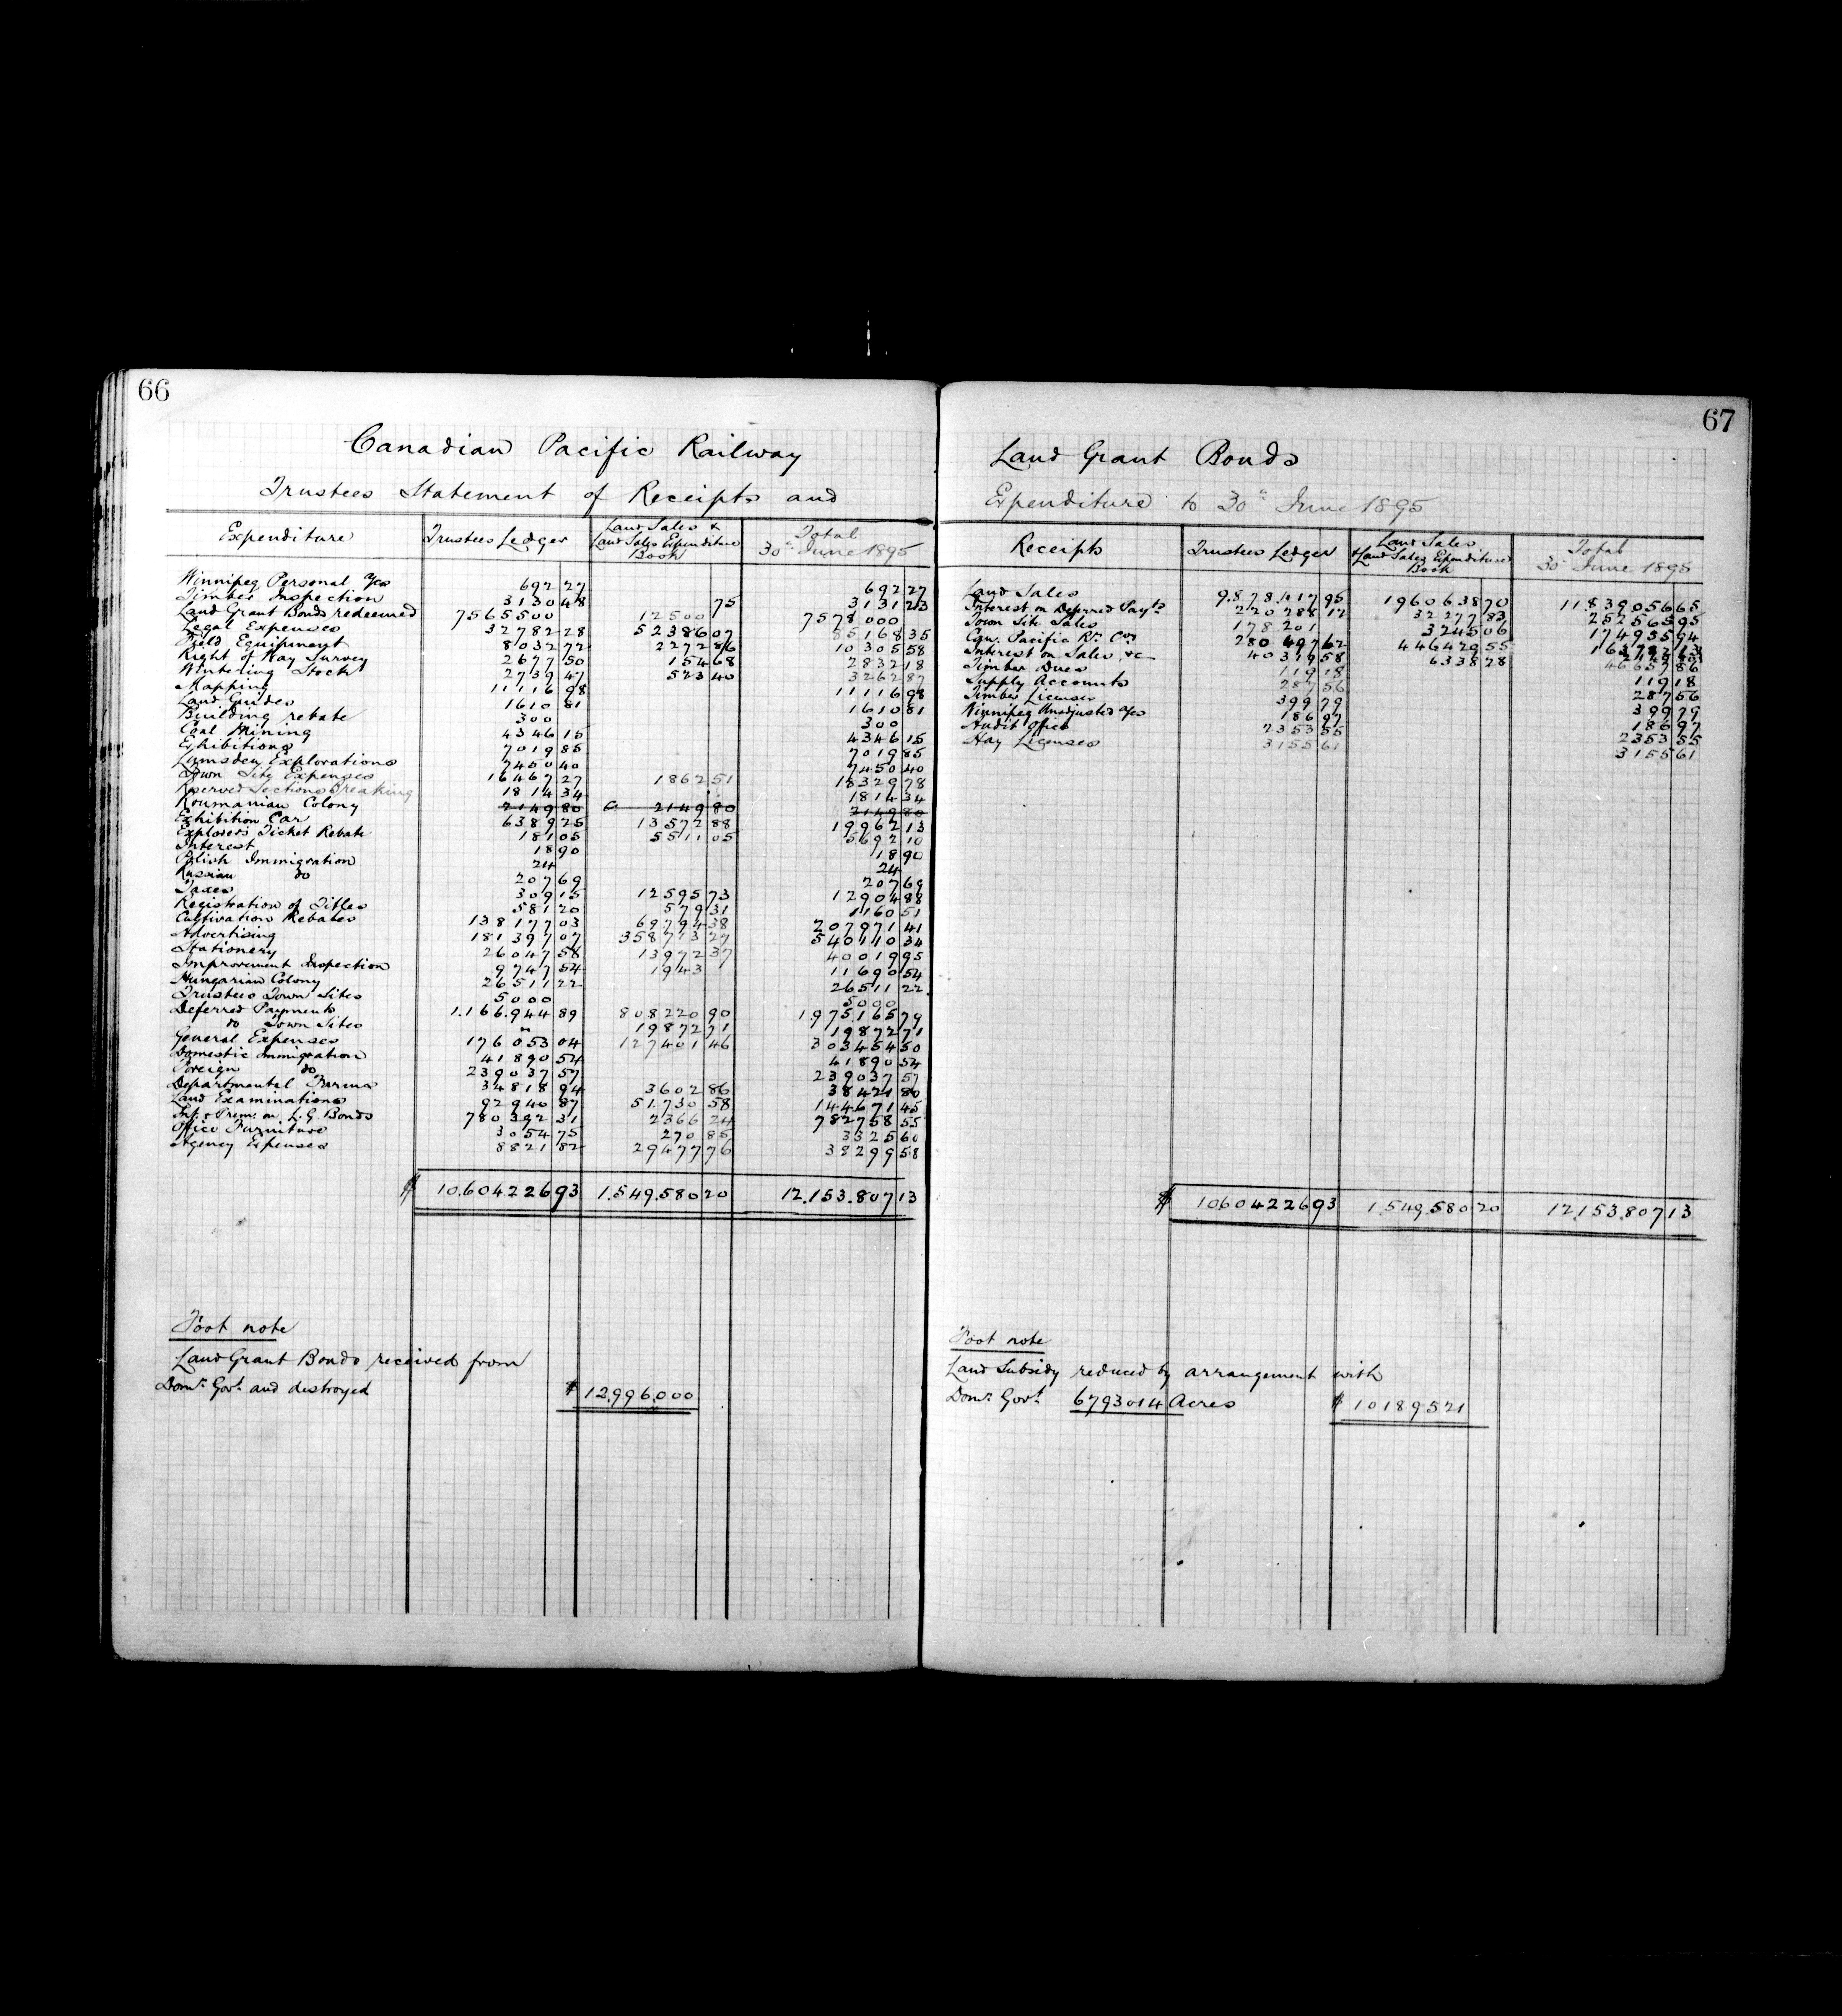 66
Canadian Pacific Railway
Trustees Statement of Receipts and
Expenditure Trustees Ledger Land Sales & Land Sales Expenditure Book Total 30th June 1895
Winnipeg Personal a/cs 692 27 692 27
Timber Inspection 3130 48 75 3131 23
Land Grant Bonds redeemed 7565500 12500 7578000
Legal Expenses 32782 28 52386 07 85168 35
Field Equipment 8032 72 2272 86 10305 58
Right of Way Survey 2677 50 154 68 2832 18
Wintering Stock 2739 47 523 40 3262 87
Mapping 11116 98 11116 98
Land Guides 1610 81 1610 81
Building rebate 300 300
Coal Mining 4346 15 4346 15
Exhibitions 7019 85 7019 85
Lumsden Explorations 7450 40 7450 40
Town Site Expenses 16467 27 1862 51 18329 78
Reserved Sections Breaking 1814 34 1814 34
Roumanian Colony 2149 80 2149 80 2149 80
Exhibition Car 6389 25 13572 88 19962 13
Explorers Ticket Rebate 181 05 5511 05 5692 10
Interest 18 90 18 90
Polish Immigration 24 24
Russian do 207 69 207 69
Taxes 309 15 12595 73 12904 88
Registration of Titles 581 20 579 31 1160 51
Cultivation Rebates 138177 03 69794 38 207971 41
Advertising 181397 07 358713 27 540110 34
Stationery 26047 58 13972 37 40019 95
Improvement Inspection 9747 54 1943 11690 54
Hungarian Colony 26511 22 26511 22
Trustees Town Sites 5000 5000
Deferred Payments 1.166.944 89 808220 90 1.975.165 79
do Town Sites " 19872 71 19872 71
General Expenses 176053 04 127401 46 303454 50
Domestic Immigration 41890 54 41890 54
Foreign do 239037 57 239037 57
Departmental Farms 34818 94 3602 86 38421 80
Land Examinations 92940 87 51.730 58 144671 45
Int. & Prem. on L.G. Bonds 780392 31 2366 24 782758 55
Office Furniture 3054 75 270 85 3325 60
Agency Expenses 8821 82 29477 76 38299 58
$ 10.604226 93 1.549.580 20 12.153.807 13
Foot note
Land Grant Bonds received from
Domn. Govt. and destroyed $ 12.996.000
67
Land Grant Bonds
Expenditure to 30th June 1895
Receipts Trustees Ledger Land Sales & Land Sales Expenditure Book Total 30 June 1895
Land Sales 9.878.417 95 1960638 70 11.839056 65
Interest on Deferred Paymts 220288 12 32277 83 252565 95
Town Site Sales 178201 3245 06 174955 94
Can. Pacific Ry. Coy 280 49762 446429 55
Interest on Sales &c 40319 58 6338 28 46657 86
Timber Dues 119 18 119 18
Supply Accounts 287 56 287 56
Timber Licenses 399 79 399 79
Winnipeg Unadjusted a/cs 186 97 186 97
Audit Office 2353 55 2353 55
Hay Licenses 3155 61 3155 61
$ 10604226 93 1.549.580 20 12.153.807 13
Foot note
Land Subsidy reduced by arrangement with
Domn. Govt. 6793014 Acres $ 10189521